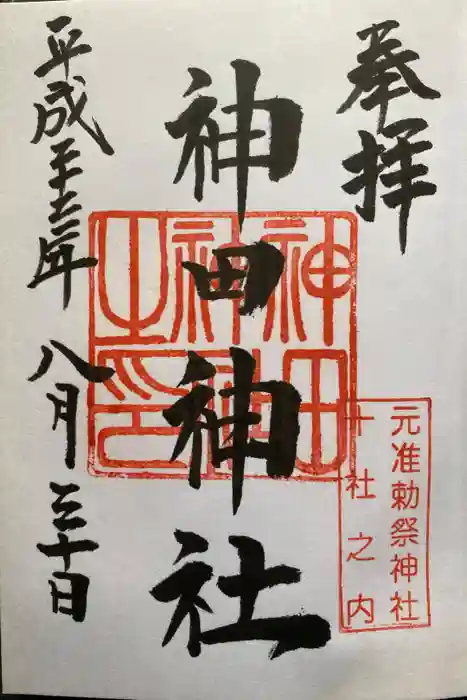 奉拝
元准勅祭神社
十社之内
神田神社
神田神社之印
平成二十三年八月三十日